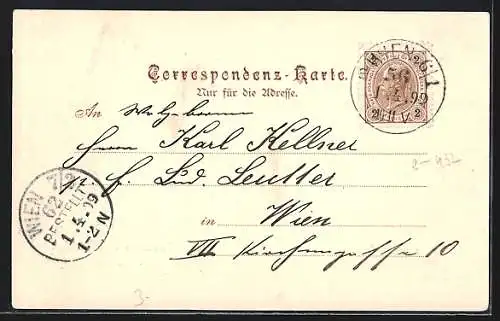 Correspondenz-Karte.
Nur für die Adresse.
An Wohlgeboren
Herrn Karl Kellner
p. f. Lud. Leutter
in Wien
VII Kirchengasse 10
WIEN 7/2
62
BESTELLT
1.4.99
1-2 N
99
2 2
3-